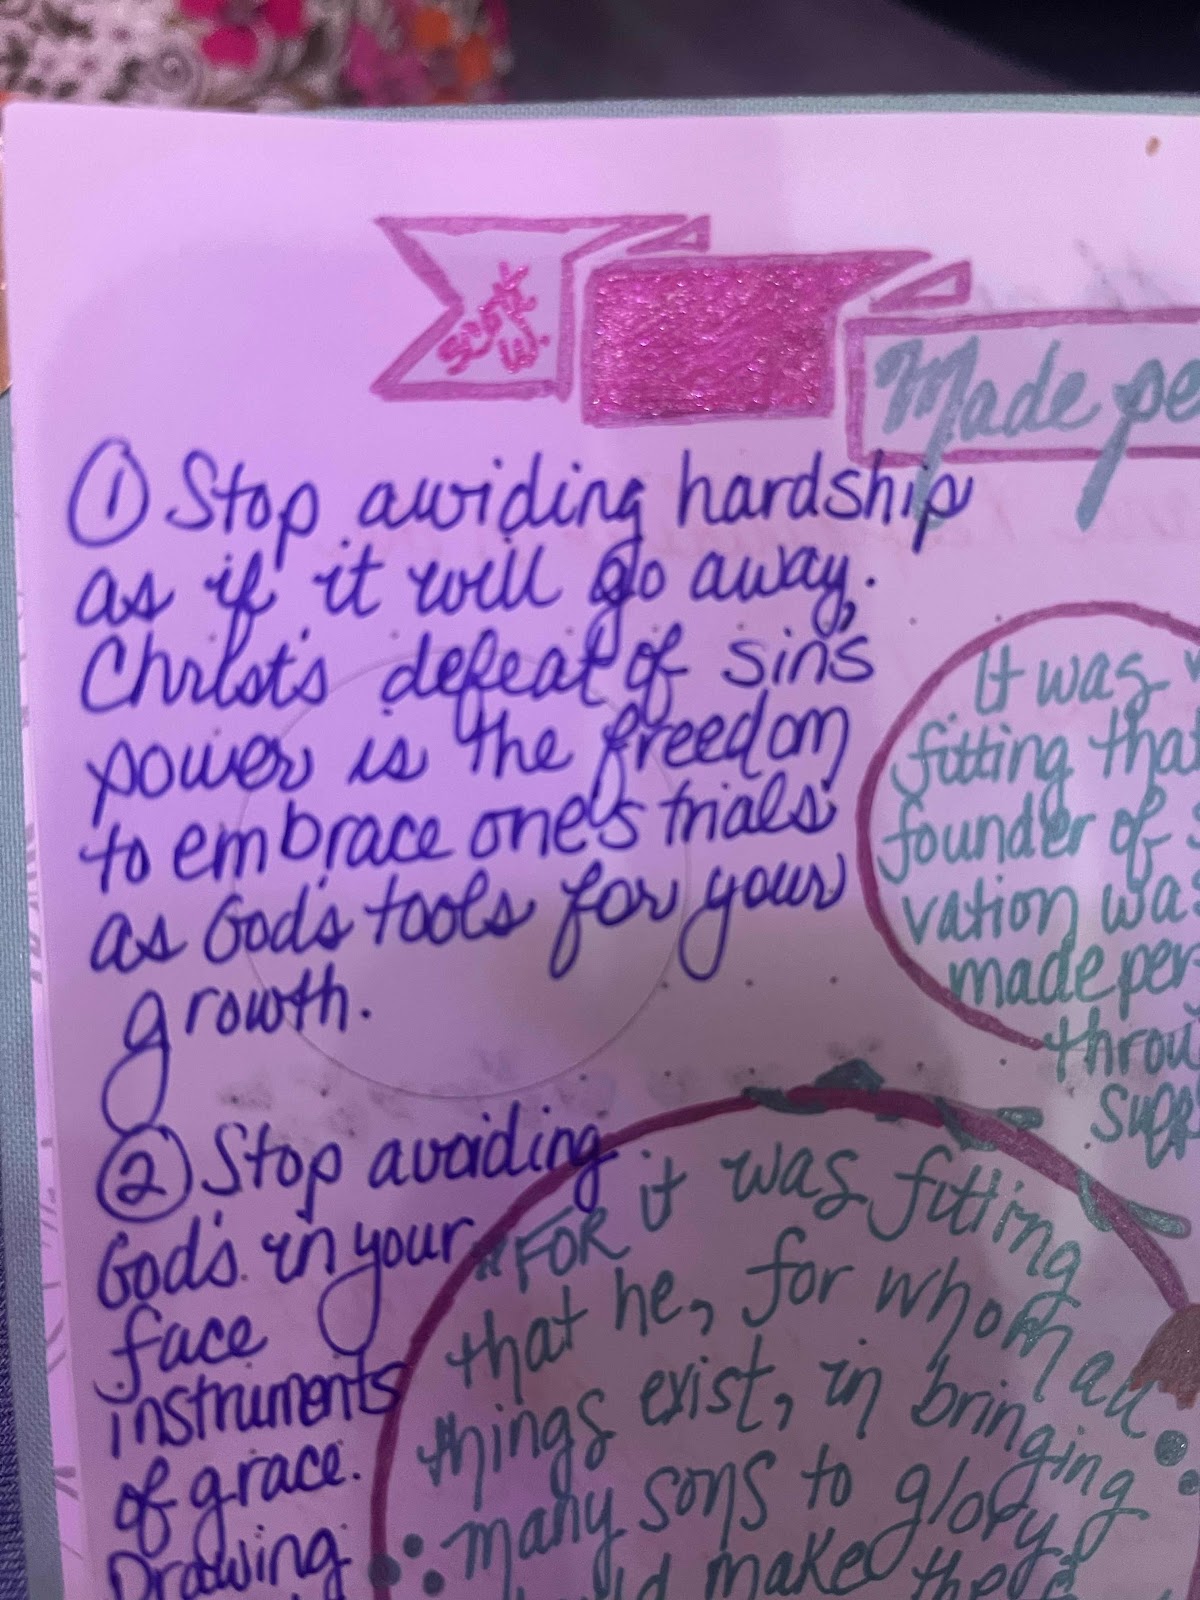 Made pe
① Stop avoiding hardship
as if it will go away.
Christ's defeat of sins
power is the freedom
to embrace one's trials
as God's tools for your
growth.
② Stop avoiding
God's in your
face
instruments
of grace.
Drawing
It was
fitting that
founder of
vation was
made per-
throu
suff
"FOR it was fitting
that he, for whom all
things exist, in bringing
many sons to glory
make the